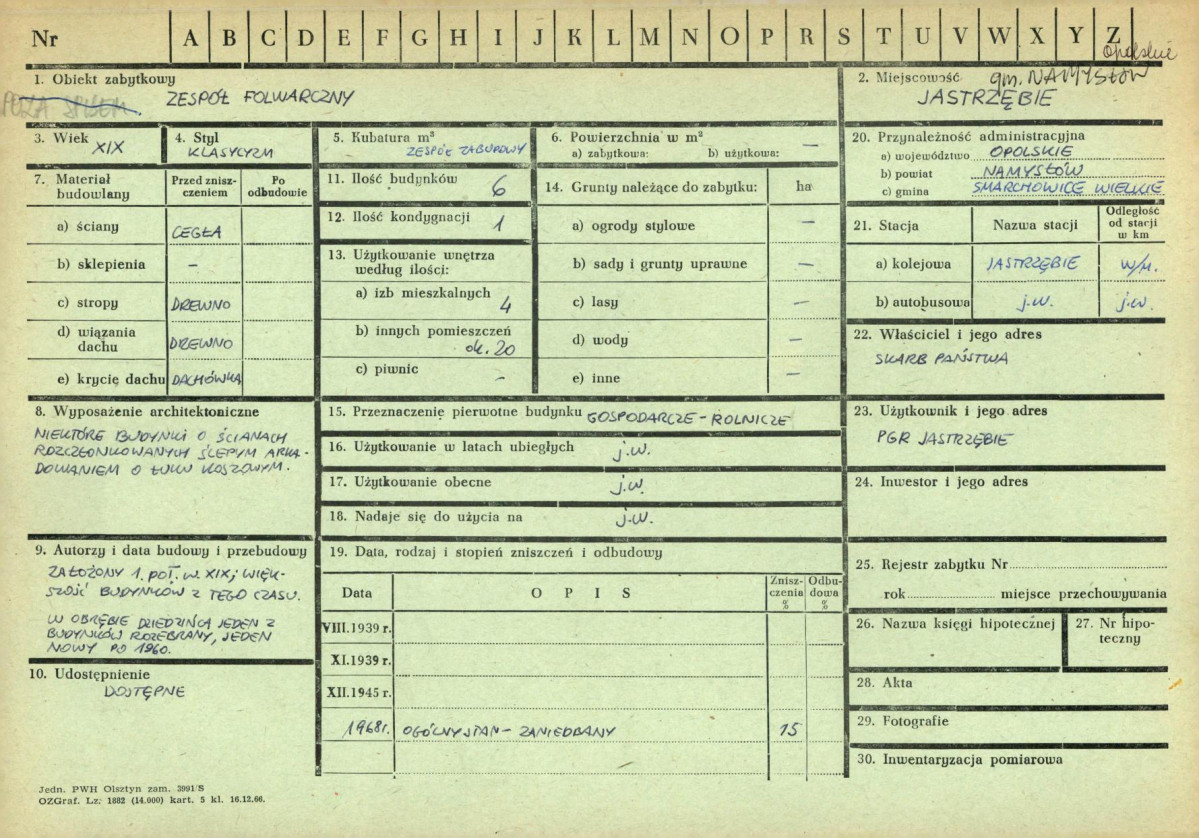 Nr A B C D E F G H I J K L M N O P R S T U V W X Y Z
opolskie
1. Obiekt zabytkowy
ZESPÓŁ FOLWARCZNY
2. Miejscowość gm. NAMYSŁÓW
JASTRZĘBIE
3. Wiek
XIX
4. Styl
KLASYCYZM
5. Kubatura m³
ZESPÓŁ ZABUDOWY
6. Powierzchnia w m²
a) zabytkowa: b) użytkowa: —
7. Materiał budowlany
Przed zniszczeniem
Po odbudowie
a) ściany CEGŁA
b) sklepienia –
c) stropy DREWNO
d) wiązania dachu DREWNO
e) krycie dachu DACHÓWKA
11. Ilość budynków 6
12. Ilość kondygnacji 1
13. Użytkowanie wnętrza
według ilości:
a) izb mieszkalnych
4
b) innych pomieszczeń
ok. 20
c) piwnic –
14. Grunty należące do zabytku: ha
a) ogrody stylowe —
b) sady i grunty uprawne —
c) lasy —
d) wody —
e) inne —
20. Przynależność administracyjna
a) województwo OPOLSKIE
b) powiat NAMYSŁÓW
c) gmina SMARCHOWICE WIELKIE
21. Stacja Nazwa stacji Odległość od stacji w km
a) kolejowa JASTRZĘBIE W/M.
b) autobusowa j.w. j.w.
22. Właściciel i jego adres
SKARB PAŃSTWA
8. Wyposażenie architektoniczne
NIEKTÓRE BUDYNKI O ŚCIANACH
ROZCZŁONKOWANYCH ŚLEPYM ARKA-
DOWANIEM O ŁUKU KOSZOWYM.
15. Przeznaczenie pierwotne budynku GOSPODARCZE – ROLNICZE
16. Użytkowanie w latach ubiegłych j.w.
17. Użytkowanie obecne j.w.
18. Nadaje się do użycia na j.w.
23. Użytkownik i jego adres
PGR JASTRZĘBIE
24. Inwestor i jego adres
9. Autorzy i data budowy i przebudowy
ZAŁOŻONY 1. POŁ. W. XIX; WIĘK-
SZOŚĆ BUDYNKÓW Z TEGO CZASU.
W OBRĘBIE DZIEDZIŃCA JEDEN Z
BUDYNKÓW ROZEBRANY, JEDEN
NOWY PO 1960.
10. Udostępnienie
DOSTĘPNE
19. Data, rodzaj i stopień zniszczeń i odbudowy
Data O P I S Zniszczenia % Odbudowa %
VIII.1939 r.
XI.1939 r.
XII.1945 r.
1968r. OGÓLNY STAN – ZANIEDBANY 15
25. Rejestr zabytku Nr
rok miejsce przechowywania
26. Nazwa księgi hipotecznej
27. Nr hipoteczny
28. Akta
29. Fotografie
30. Inwentaryzacja pomiarowa
Jedn. PWH Olsztyn zam. 3991/S
OZGraf. Lz. 1882 (14.000) kart. 5 kl. 16.12.66.